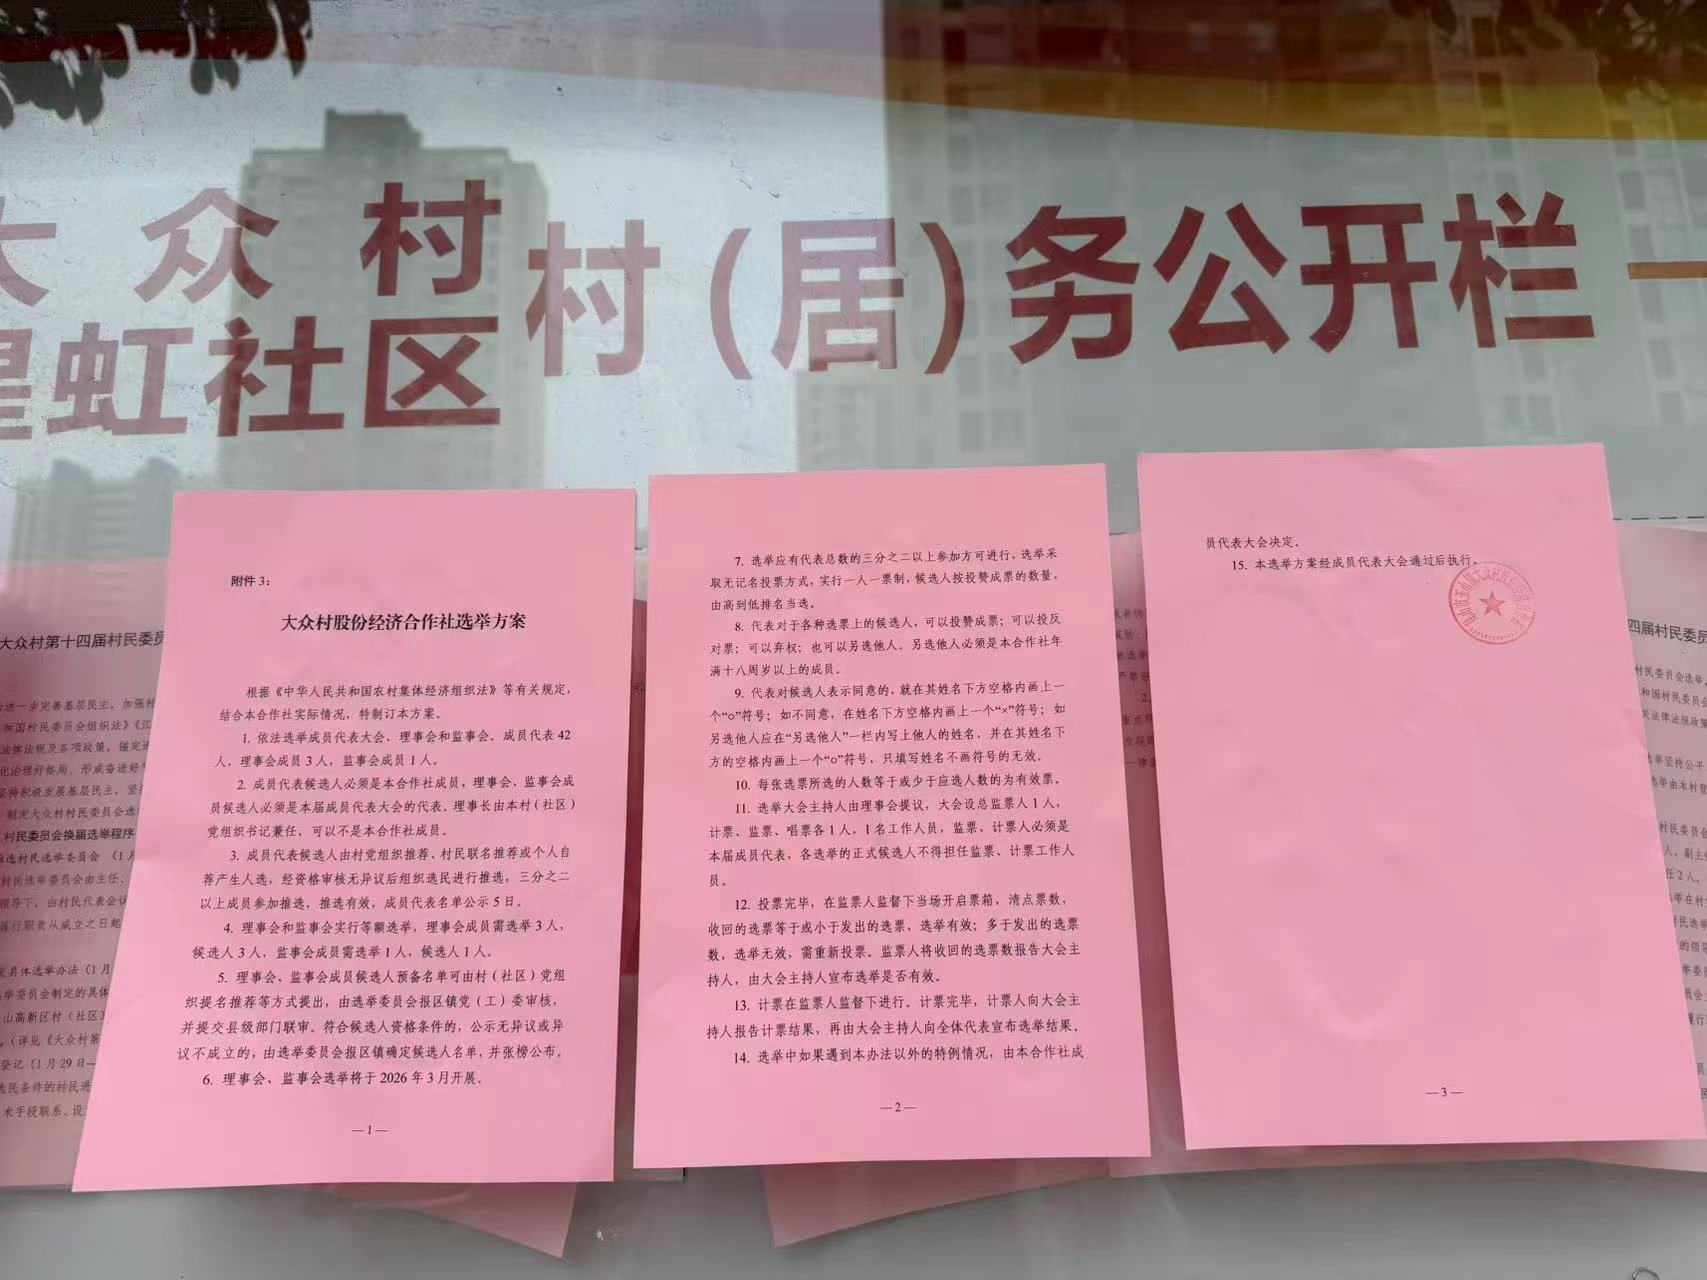 大众村
虹社区
村(居)务公开栏
附件 3:
大众村股份经济合作社选举方案
根据《中华人民共和国农村集体经济组织法》等有关规定，
结合本合作社实际情况，特制订本方案。
1. 依法选举成员代表大会、理事会和监事会。成员代表 42
人，理事会成员 3 人，监事会成员 1 人。
2. 成员代表候选人必须是本合作社成员，理事会、监事会成
员候选人必须是本届成员代表大会的代表。理事长由本村（社区）
党组织书记兼任，可以不是本合作社成员。
3. 成员代表候选人由村党组织推荐、村民联名推荐或个人自
荐产生人选，经资格审核无异议后组织选民进行推选，三分之二
以上成员参加推选，推选有效，成员代表名单公示 5 日。
4. 理事会和监事会实行等额选举，理事会成员需选举 3 人，
候选人 3 人，监事会成员需选举 1 人，候选人 1 人。
5. 理事会、监事会成员候选人预备名单可由村（社区）党组
织提名推荐等方式提出，由选举委员会报区镇党（工）委审核，
并提交县级部门联审。符合候选人资格条件的，公示无异议或异
议不成立的，由选举委员会报区镇确定候选人名单，并张榜公布。
6. 理事会、监事会选举将于 2026 年 3 月开展。
—1—
7. 选举应有代表总数的三分之二以上参加方可进行，选举采
取无记名投票方式，实行一人一票制，候选人按投赞成票的数量，
由高到低排名当选。
8. 代表对于各种选票上的候选人，可以投赞成票；可以投反
对票；可以弃权；也可以另选他人。另选他人必须是本合作社年
满十八周岁以上的成员。
9. 代表对候选人表示同意的，就在其姓名下方空格内画上一
个“○”符号；如不同意，在姓名下方空格内画上一个“×”符号；如
另选他人应在“另选他人”一栏内写上他人的姓名，并在其姓名下
方的空格内画上一个“○”符号，只填写姓名不画符号的无效。
10. 每张选票所选的人数等于或少于应选人数的为有效票。
11. 选举大会主持人由理事会提议，大会设总监票人 1 人，
计票、监票、唱票各 1 人，1 名工作人员，监票、计票人必须是
本届成员代表，各选举的正式候选人不得担任监票、计票工作人
员。
12. 投票完毕，在监票人监督下当场开启票箱，清点票数，
收回的选票等于或小于发出的选票，选举有效；多于发出的选票
数，选举无效，需重新投票。监票人将收回的选票数报告大会主
持人，由大会主持人宣布选举是否有效。
13. 计票在监票人监督下进行。计票完毕，计票人向大会主
持人报告计票结果，再由大会主持人向全体代表宣布选举结果。
14. 选举中如果遇到本办法以外的特例情况，由本合作社成
—2—
员代表大会决定。
15. 本选举方案经成员代表大会通过后执行。
—3—
大众村第十四届村民委员
村民委员会换届选举程序
四届村民委员